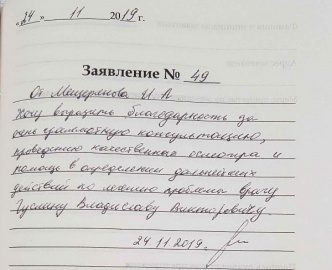 "24" 11 2019 г.
Заявление № 49
От Мещерякова И.А.
Хочу выразить благодарность за
очень грамотную консультацию,
проведению качественного осмотра и
помощь в определении дальнейших
действий по лечению проблемы врачу
Гуслину Владиславу Викторовичу.
24.11.2019г.